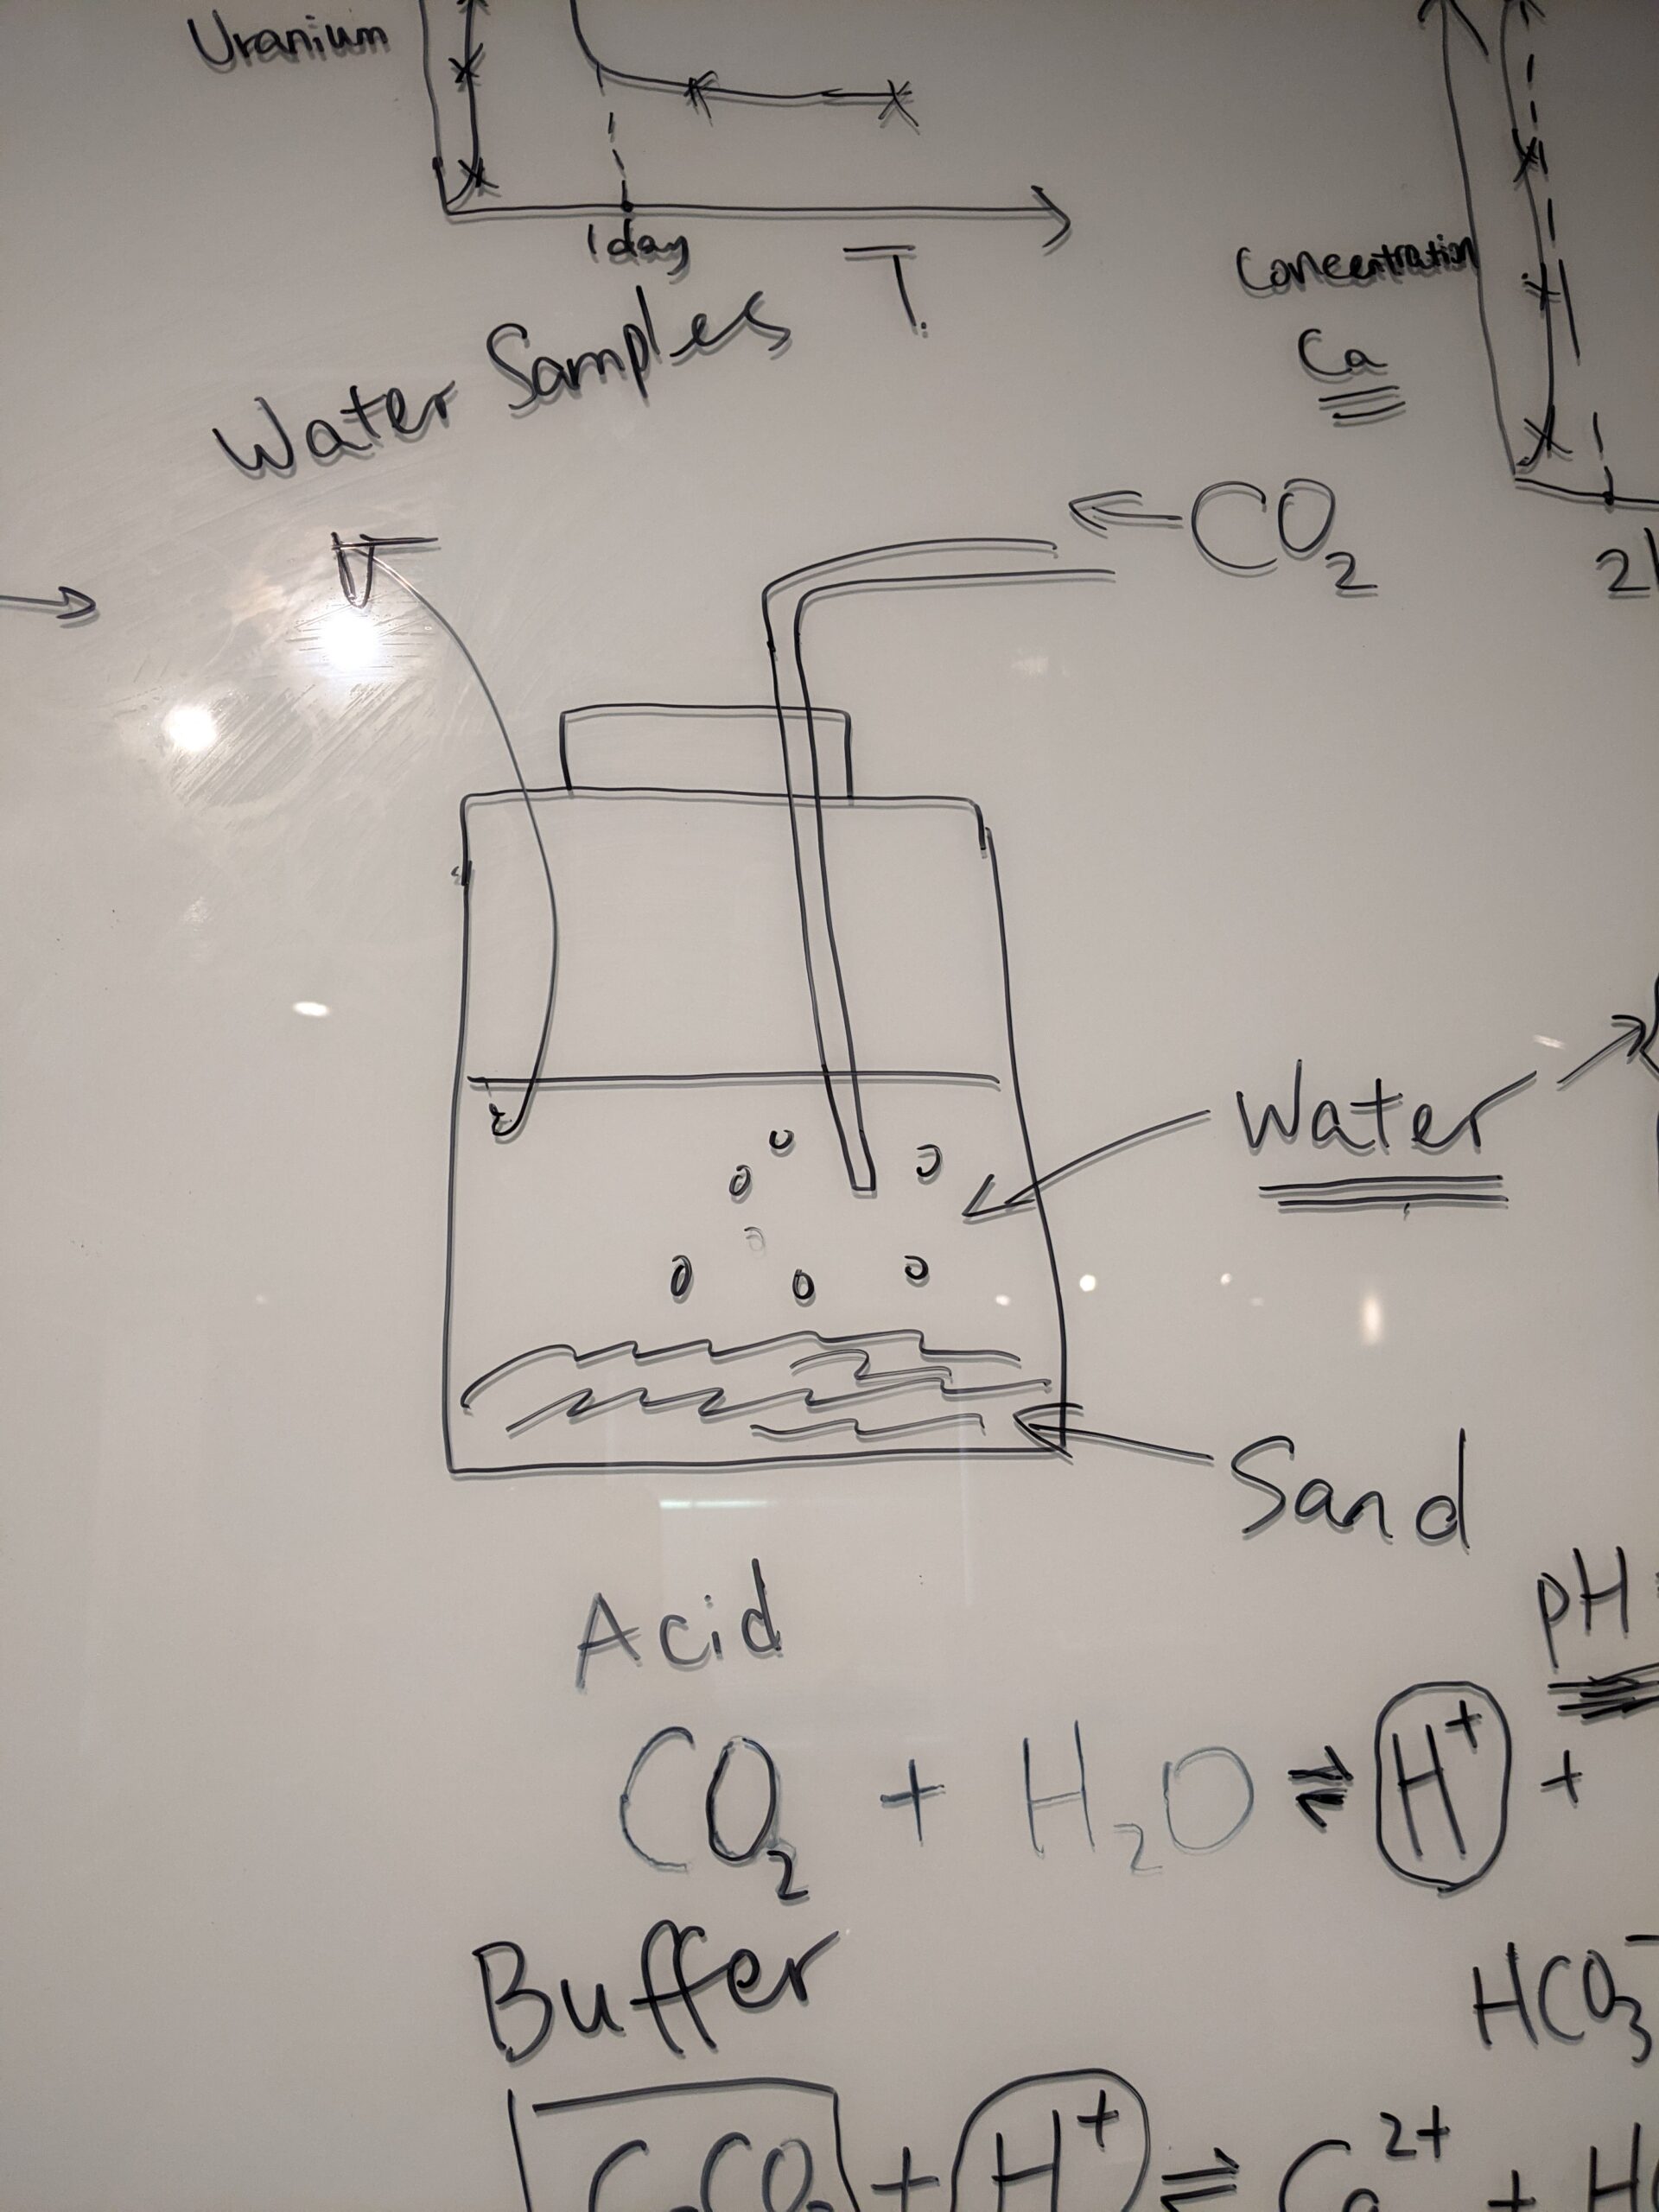 Uranium
1 day
T.
Water Samples
Concentration
Ca
CO2
Water
Sand
Acid
pH
CO2 + H2O ⇌ H+ +
HCO3-
Buffer
CaCO3 + H+ ⇌ Ca2+ +